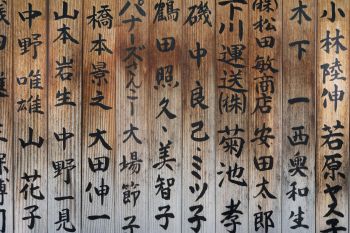 小林陸伸 若原ヤス子
木下 一 西奥和生
㈱松田敏商店 安田太郎
下川運送㈱ 菊池 孝
磯中良己 ミツ子
鶴田照久・美智子
パナーズさんこー 大場節子
橋本景之 大田伸一
山本岩生 中野一見
中野唯雄 山 花子